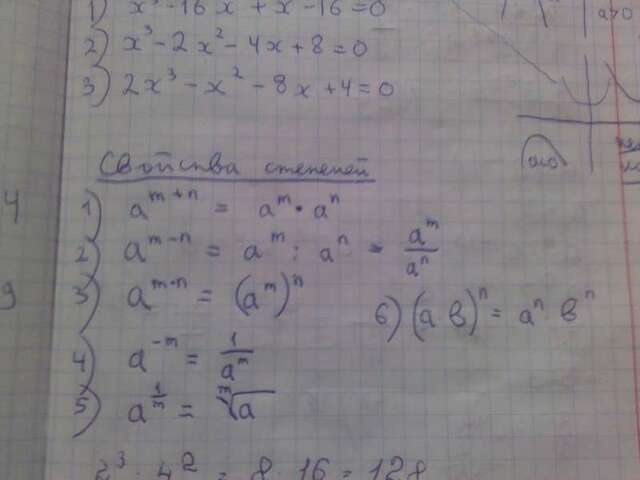 1) x³ - 16x + x - 16 = 0
2) x³ - 2x² - 4x + 8 = 0
3) 2x³ - x² - 8x + 4 = 0
a>0
Свойства степеней
4
1) a^(m+n) = a^m · a^n
2) a^(m-n) = a^m : a^n = a^m/a^n
9
3) a^(m·n) = (a^m)^n
6) (a b)^n = a^n b^n
4) a^(-m) = 1/a^m
5) a^(1/m) = ᵐ√a
2³ · 4² = 8 · 16 = 128